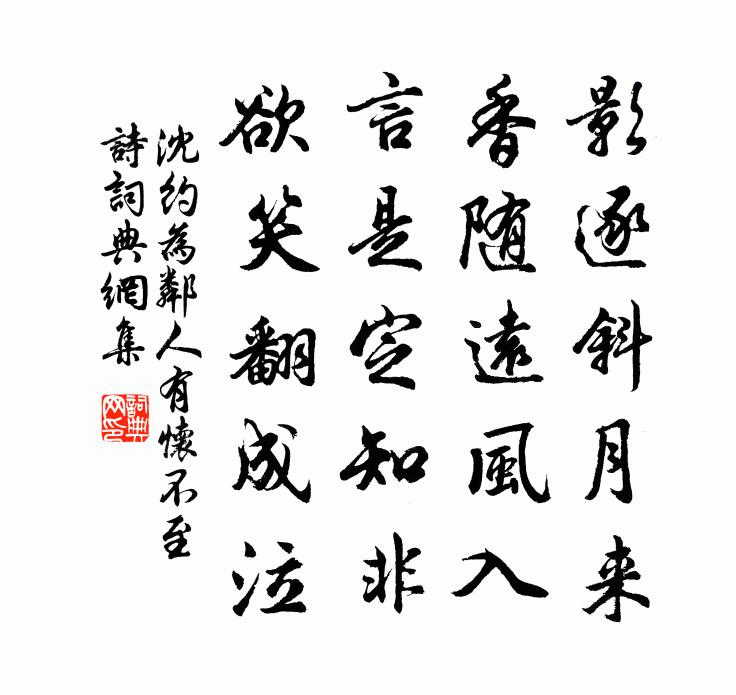 影逐斜月来
香随遠風入
言是定知非
欲笑翻成泣
沈約為鄰人有懷不至
詩詞典網集
詞典
网印